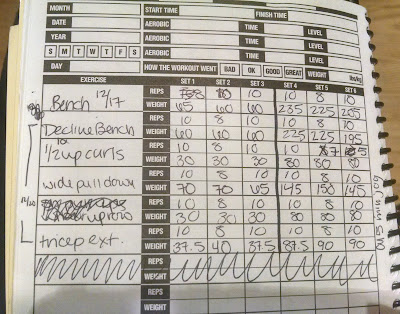 MONTH START TIME FINISH TIME
DATE AEROBIC TIME LEVEL
YEAR AEROBIC TIME LEVEL
S M T W T F S AEROBIC TIME LEVEL
DAY HOW THE WORKOUT WENT BAD OK GOOD GREAT WEIGHT lbs/kg
EXERCISE SET 1 SET 2 SET 3 SET 4 SET 5 SET 6
Bench 12/17 REPS 8 10 10 8 10
WEIGHT 65 60 60 235 225 205
Decline Bench REPS 10 8 10 10 8 10
WEIGHT 60 60 60 225 225 195
1/2 up curls REPS 10 8 10 10 8 7
WEIGHT 30 30 30 80 80 80
wide pull down REPS 10 8 10 10 8 10
WEIGHT 70 70 65 145 150 145
REPS 10 8 10 10 8 10
WEIGHT 30 30 30 80 80 80
tricep ext. REPS 10 8 10 10 8 10
WEIGHT 37.5 40 37.5 87.5 90 90
REPS
WEIGHT
REPS
WEIGHT